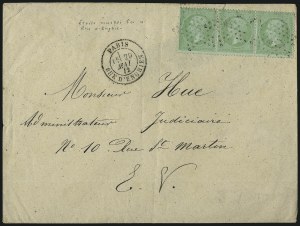 PARIS
29
MAI
RUE D'ENGHIEN
Monsieur Hue
Administrateur Judiciaire
No 10 Rue St Martin
E. V.